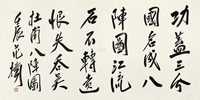 功蓋三分
國名成八
陣圖江流
石不轉遺
恨失吞吴
杜甫八陣圖
壬辰